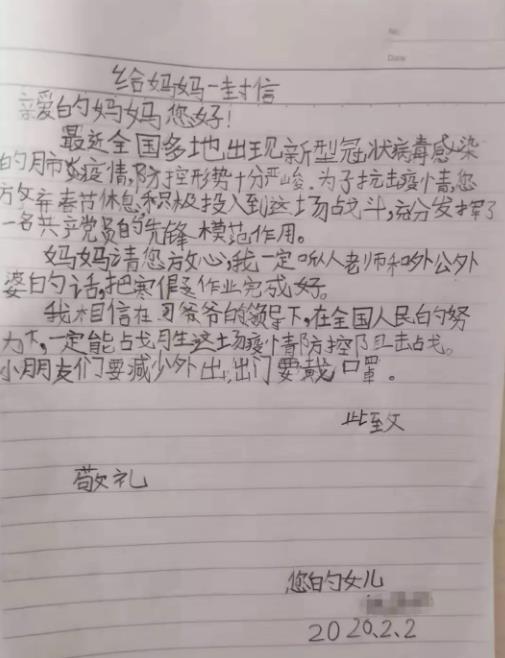 No.
Date
给妈妈一封信
亲爱的妈妈您好！
最近全国多地出现新型冠状病毒感染
的肺炎疫情,防控形势十分严峻.为了抗击疫情,您
放弃春节休息,积极投入到这场战斗,充分发挥了
一名共产党员的先锋模范作用。
妈妈请您放心,我一定听从老师和外公外
婆的话,把寒假作业完成好。
我相信在习爷爷的领导下,在全国人民的努
力下,一定能占戈胜这场疫情防控阻击战。
小朋友们要减少外出,出门要戴口罩。
此至文
敬礼
您的女儿
2020.2.2